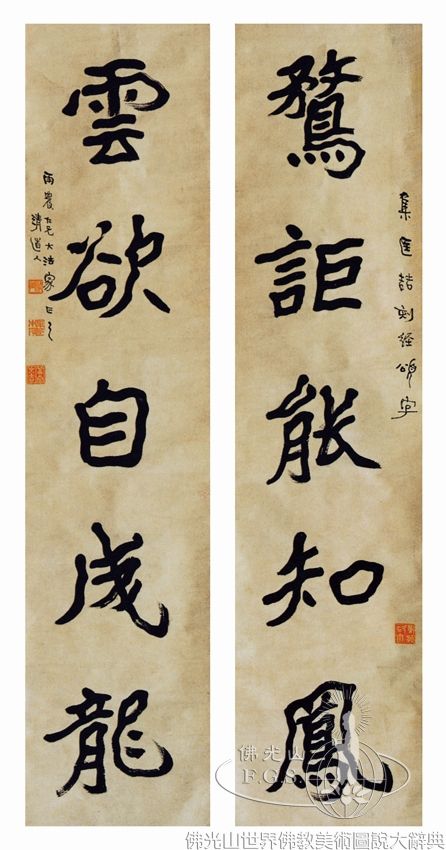 鶩詎能知鳳
集匡喆刻经頌字
雲欲自成龍
雨農仁兄大法家正之
清道人
佛光山
F.G.S.
佛光山世界佛教美術圖說大辭典